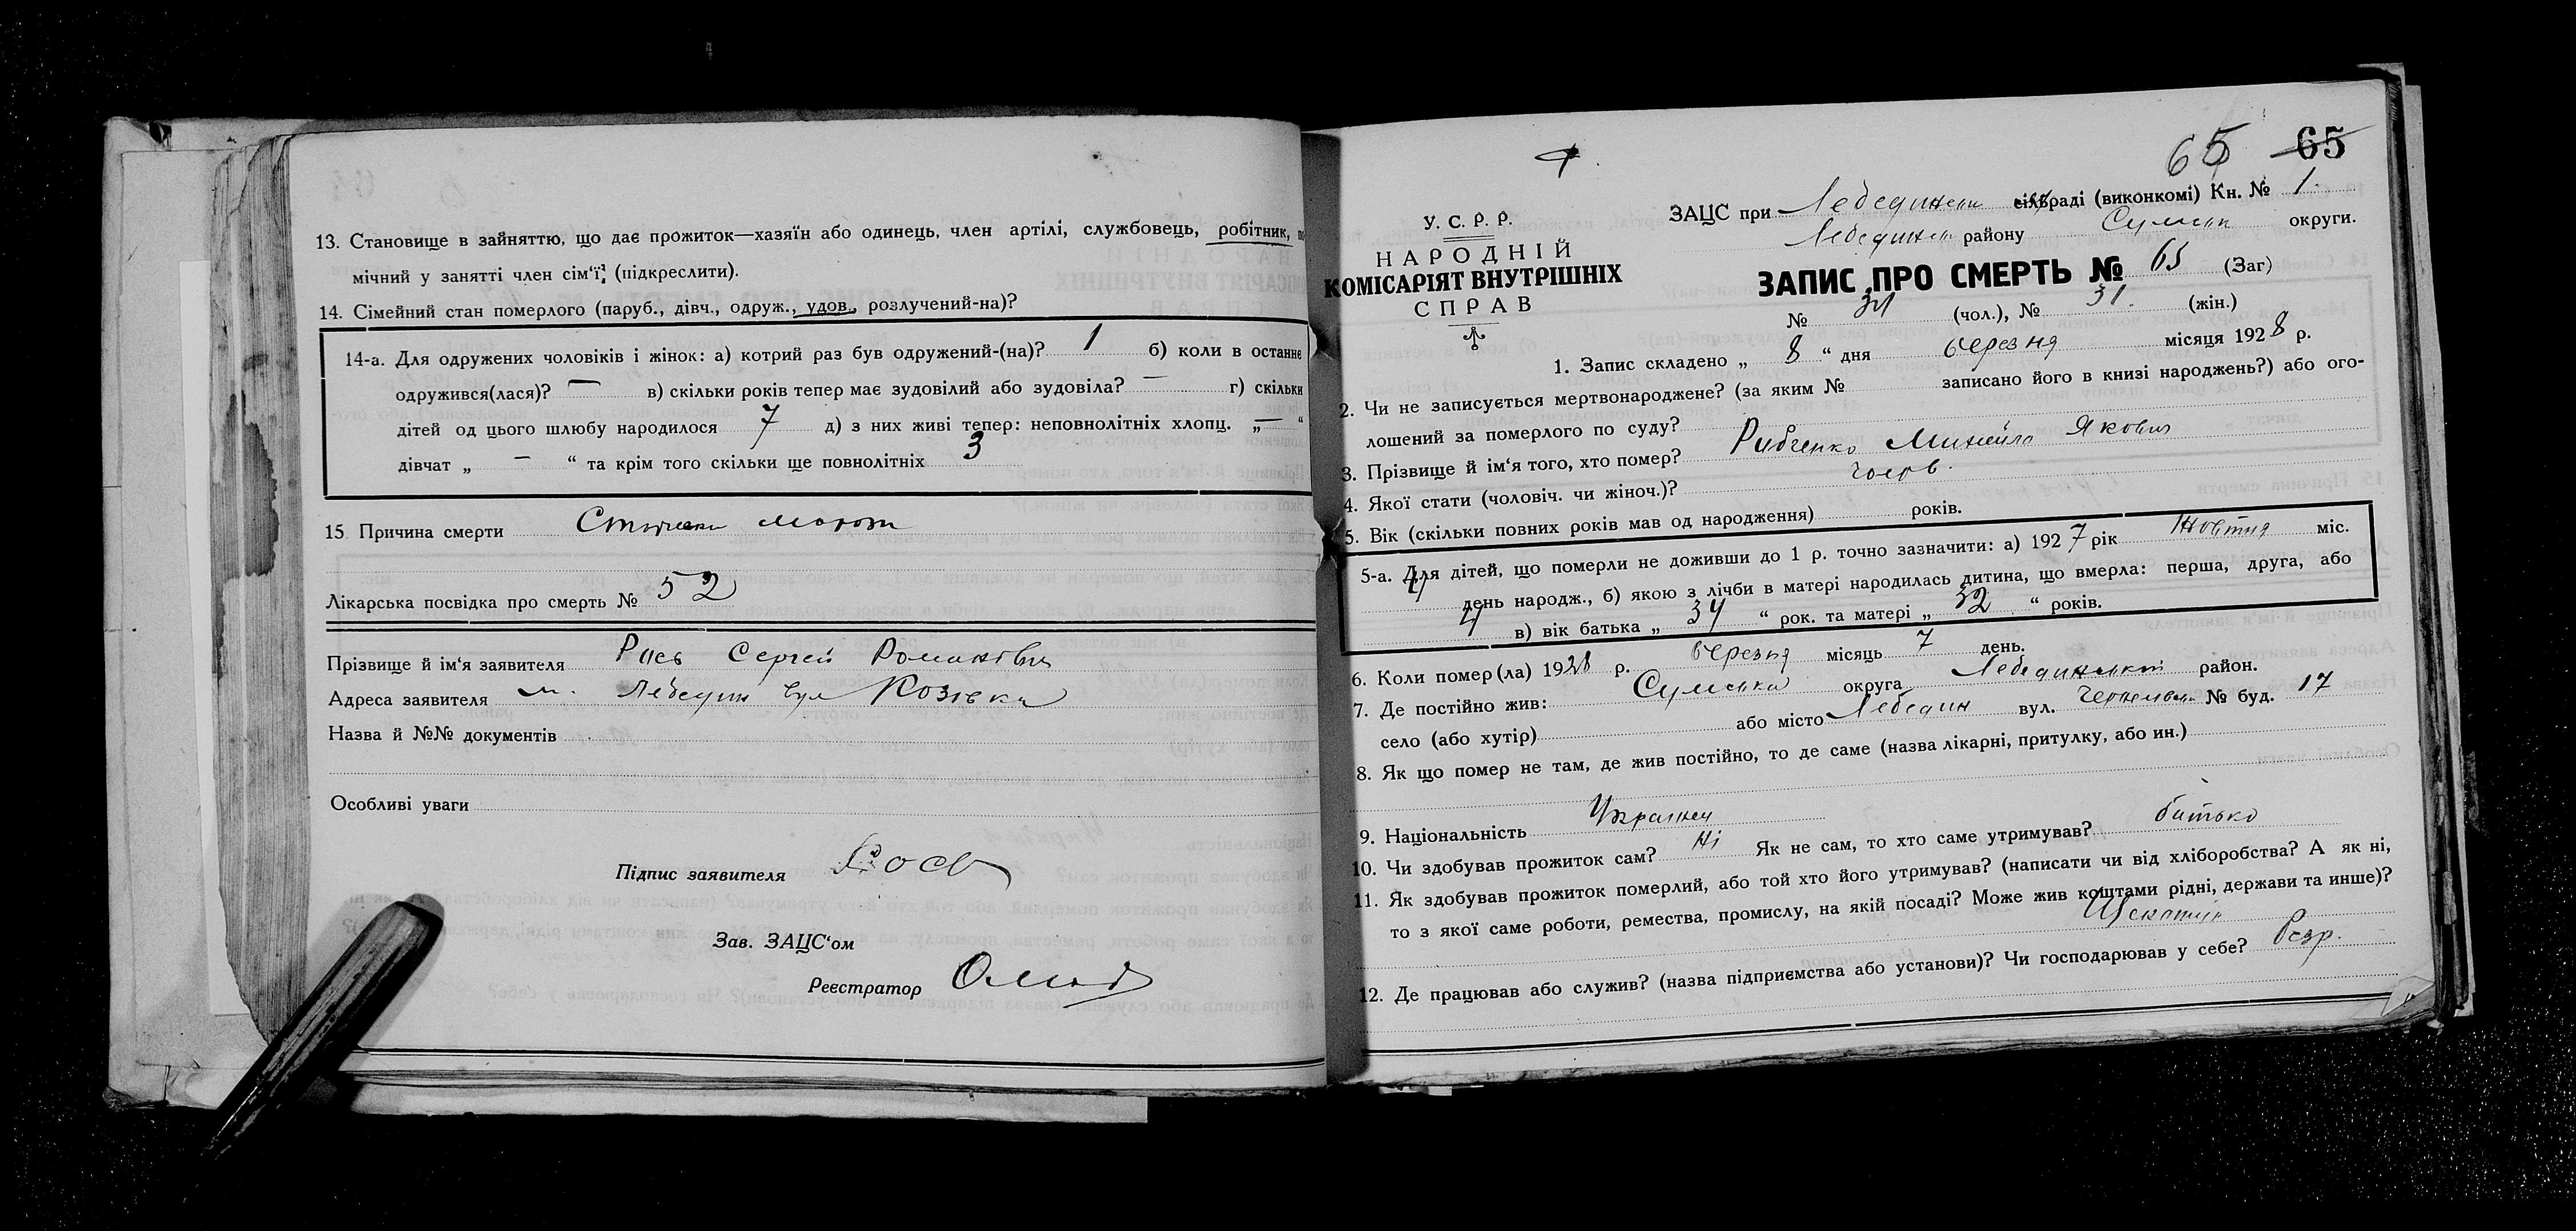 13. Становище в зайняттю, що дає прожиток—хазяїн або одинець, член артілі, службовець, робітник, по
мічний у занятті член сім‘ї, (підкреслити).
14. Сімейний стан померлого (паруб., дівч., одруж., удов., розлучений-на)?
14-а. Для одружених чоловіків і жінок: а) котрий раз був одружений-(на)? 1 б) коли в останнє
одружився(лася)? — в) скільки років тепер має зудовілий або зудовіла? — г) скільки
дітей од цього шлюбу народилося 7 д) з них живі тепер: неповнолітніх хлопц. „ — “
дівчат „ — “ та крім того скільки ще повнолітніх 3
15 Причина смерти
Лікарська посвідка про смерть № 52
Прізвище й ім‘я заявителя Рось Сергей Романович
Адреса заявителя м. Лебедин вул Козівка
Назва й №№ документів
Особливі уваги
Підпис заявителя Рось
Зав. ЗАЦС‘ом
Реєстратор
65 65
У. С. Р. Р.
НАРОДНІЙ
КОМІСАРІЯТ ВНУТРІШНІХ
СПРАВ
ЗАЦС при Лебединськ сільраді (виконкомі) Кн. № 1.
Лебединськ району Сумськ округи.
ЗАПИС ПРО СМЕРТЬ № 65 (Заг)
№ 34 (чол.), № 31. (жін.)
1. Запис складено „ 8 “ дня березня місяця 1928 р.
2. Чи не записується мертвонароджене? (за яким № записано його в книзі народжень?) або ого-
лошений за померлого по суду?
3. Прізвище й ім‘я того, хто помер? Рибченко Михайло Якович
4. Якої стати (чоловіч. чи жіноч.)? чолов.
5. Вік (скільки повних років мав од народження) років.
5-а. Для дітей, що померли не доживши до 1 р. точно зазначити: а) 1927 рік Жовтня міс.
день народж., б) якою з лічби в матері народилась дитина, що вмерла: перша, друга, або
4 в) вік батька „ 34 “ рок. та матері „ 32 “ років.
6. Коли помер(ла) 1928 р. березня місяць 7 день.
7. Де постійно жив: Сумська округа Лебединський район.
село (або хутір) або місто Лебедин вул. № буд. 17
8. Як що помер не там, де жив постійно, то де саме (назва лікарні, притулку, або ин.)
9. Національність Українец
10. Чи здобував прожиток сам? Ні Як не сам, то хто саме утримував? батько
11. Як здобував прожиток померлий, або той хто його утримував? (написати чи від хліборобства? А як ні,
то з якої саме роботи, ремества, промислу, на якій посаді? Може жив коштами рідні, держави та инше)?
12. Де працював або служив? (назва підприємства або установи)? Чи господарював у себе? безр.